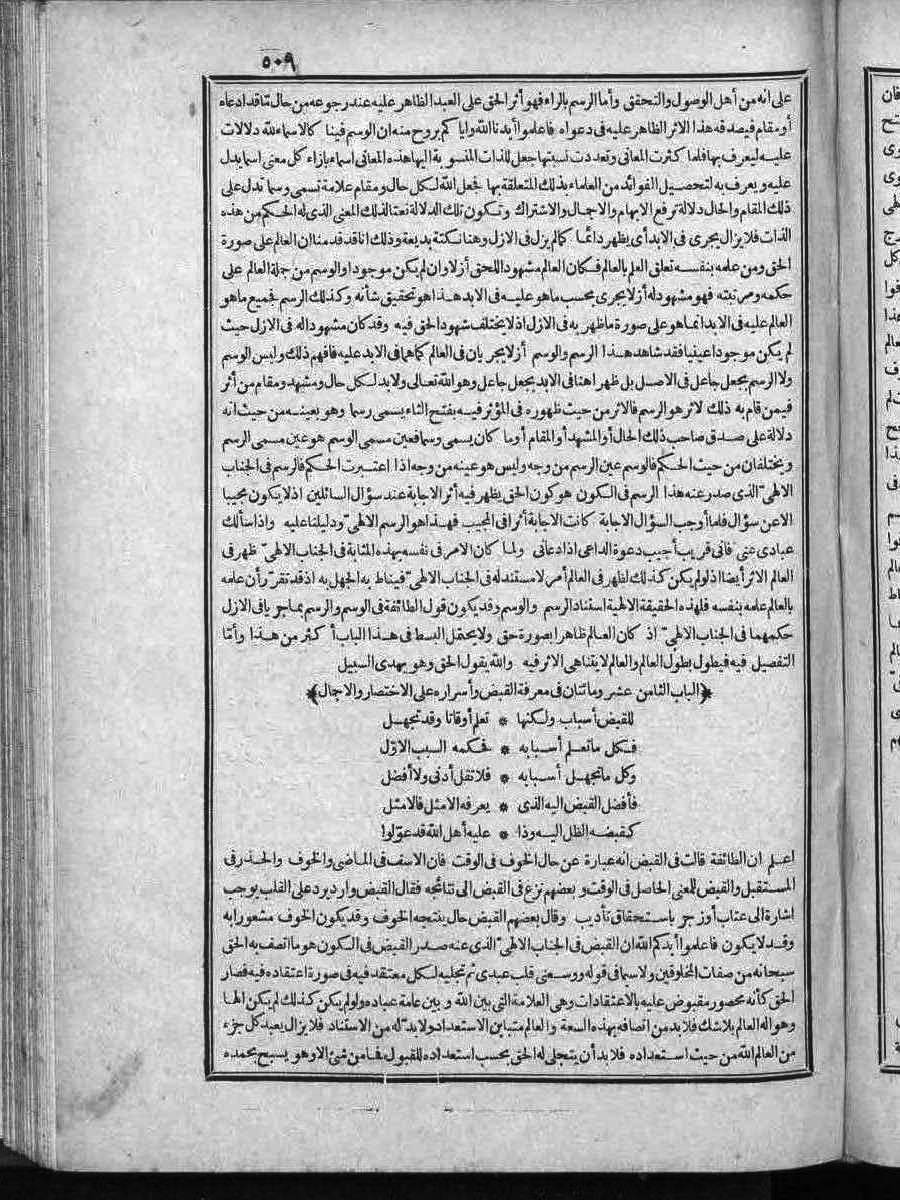 ٥٠٩
على انه من أهل الوصول والتحقق وأما الرسم بالراء فهو أثر الحق على العبد الظاهر عليه عند رجوعه من حال ما قد ادعاه
أو مقام فيصدقه هذا الاثر الظاهر عليه فى دعواه فاعلموا أيدنا الله واياكم بروح منه ان الوسم فينا كالاسماء لله دلالات
عليه ليعرف بها فلما كثرت المعانى وتعددت نسبتها جعل للذات المنسوبة اليها هذه المعانى اسماء بازاء كل معنى اسما يدل
عليه ويعرف به لتحصيل الفوائد من العلماء بذلك المتعلقة بها فجعل الله لكل حال ومقام علامة تسمى وسما تدل على
ذلك المقام والحال دلالة ترفع الابهام والاجمال والاشتراك وتكون تلك الدلالة نعتا لذلك المعنى الذى له الحكم من هذه
الذات فلا يزال يجرى فى الابد أى يظهر دائما كما لم يزل فى الازل وهنا نكتة بديعة وذلك انا قد قدمنا ان العالم على صورة
الحق ومن علمه بنفسه تعلق العلم بالعالم فكان العالم مشهود اللحق أزلا وان لم يكن موجودا والوسم من جملة العالم على
حكمه ومرتبته فهو مشهود له أزلا يجرى بحسب ما هو عليه فى الابد هذا هو تحقيق شأنه وكذلك الرسم فجميع ما هو
العالم عليه فى الابد انما هو على صورة ما ظهر به فى الازل اذ لا يختلف شهود الحق فيه وقد كان مشهودا له فى الازل حيث
لم يكن موجودا عينيا فقد شاهد هذا الرسم والوسم أزلا يجريان فى العالم كما هما فى الابد عليه فافهم ذلك وليس الوسم
ولا الرسم بجعل جاعل فى الاصل بل ظهر اهنا فى الابد بجعل جاعل وهو الله تعالى ولا بد لكل حال ومشهد ومقام من أثر
فيمن قام به ذلك لاثر هو الرسم فالاثر من حيث ظهوره فى المؤثر فيه بفتح الثاء يسمى رسما وهو بعينه من حيث انه
دلالة على صدق صاحب ذلك الحال أو المشهد أو المقام أو ما كان يسمى وسما فعين مسمى الوسم هو عين مسمى الرسم
ويختلفان من حيث الحكم فالوسم عين الرسم من وجه وليس هو عينه من وجه اذا اعتبرت الحكم فالرسم فى الجناب
الالهىّ الذى صدر عنه هذا الرسم فى الكون هو كون الحق يظهر فيه أثر الاجابة عند سؤال السائلين اذ لا يكون مجيبا
الا عن سؤال فلما أوجب السؤال الاجابة كانت الاجابة أثرا فى المجيب فهذا هو الرسم الالهىّ ودليلنا عليه واذا سألك
عبادى عنى فانى قريب أجيب دعوة الداعى اذا دعانى ولما كان الامر فى نفسه بهذه المثابة فى الجناب الالهىّ ظهر فى
العالم الاثر أيضا اذ لو لم يكن كذلك لظهر فى العالم أمر لا مستند له فى الجناب الالهىّ فيناط به الجهل به اذ قد تقرّر أن علمه
بالعالم علمه بنفسه فلهذه الحقيقة الالهية استناد الرسم والوسم وقد يكون قول الطائفة فى الوسم والرسم بما جريا فى الازل
حكمهما فى الجناب الالهىّ اذ كان العالم ظاهرا بصورة حق ولا يحتمل البسط فى هذا الباب أكثر من هذا وأمّا
التفصيل فيه فيطول بطول العالم والعالم لا يتناهى الاثر فيه والله يقول الحق وهو يهدى السبيل
﴿الباب الثامن عشر ومائتان فى معرفة القبض وأسراره على الاختصار والاجمال﴾
للقبض أسباب ولكنها * تعلم أوقاتا وقد تجهل
فكل ما تعلم أسبابه * فحكمه السبب الاوّل
وكل ما تجهل أسبابه * فلا تقل أدنى ولا أفضل
فأفضل القبض اليه الذى * يعرفه الامثل فالامثل
كقبضه الظل اليه وذا * عليه أهل الله قد عوّلوا
اعلم ان الطائفة قالت فى القبض انه عبارة عن حال الخوف فى الوقت فان الاسف فى الماضى والخوف والحذر فى
المستقبل والقبض للمعنى الحاصل فى الوقت وبعضهم نزع فى القبض الى نتائجه فقال القبض وارد يرد على القلب يوجب
اشارة الى عتاب أو زجر باستحقاق تأديب وقال بعضهم القبض حال ينتجه الخوف وقد يكون الخوف مشعورا به
وقد لا يكون فاعلموا أيدكم الله ان القبض فى الجناب الالهىّ الذى عنه صدر القبض فى الكون هو ما اتصف به الحق
سبحانه من صفات المخلوقين ولا سيما فى قوله ووسعنى قلب عبدى ثم تجليه لكل معتقد فيه فى صورة اعتقاده فيه فصار
الحق كأنه محصور مقبوض عليه بالاعتقادات وهى العلامة التى بين الله وبين عامة عباده ولو لم يكن كذلك لم يكن الها
وهو اله العالم بلا شك فلا بد من اتصافه بهذه السعة والعالم متباين الاستعداد ولا بدّ له من الاستناد فلا يزال يعبد كل جزء
من العالم الله من حيث استعداده فلا بد أن يتجلى له الحق بحسب استعداده للقبول فما من شئ الا وهو يسبح بحمده